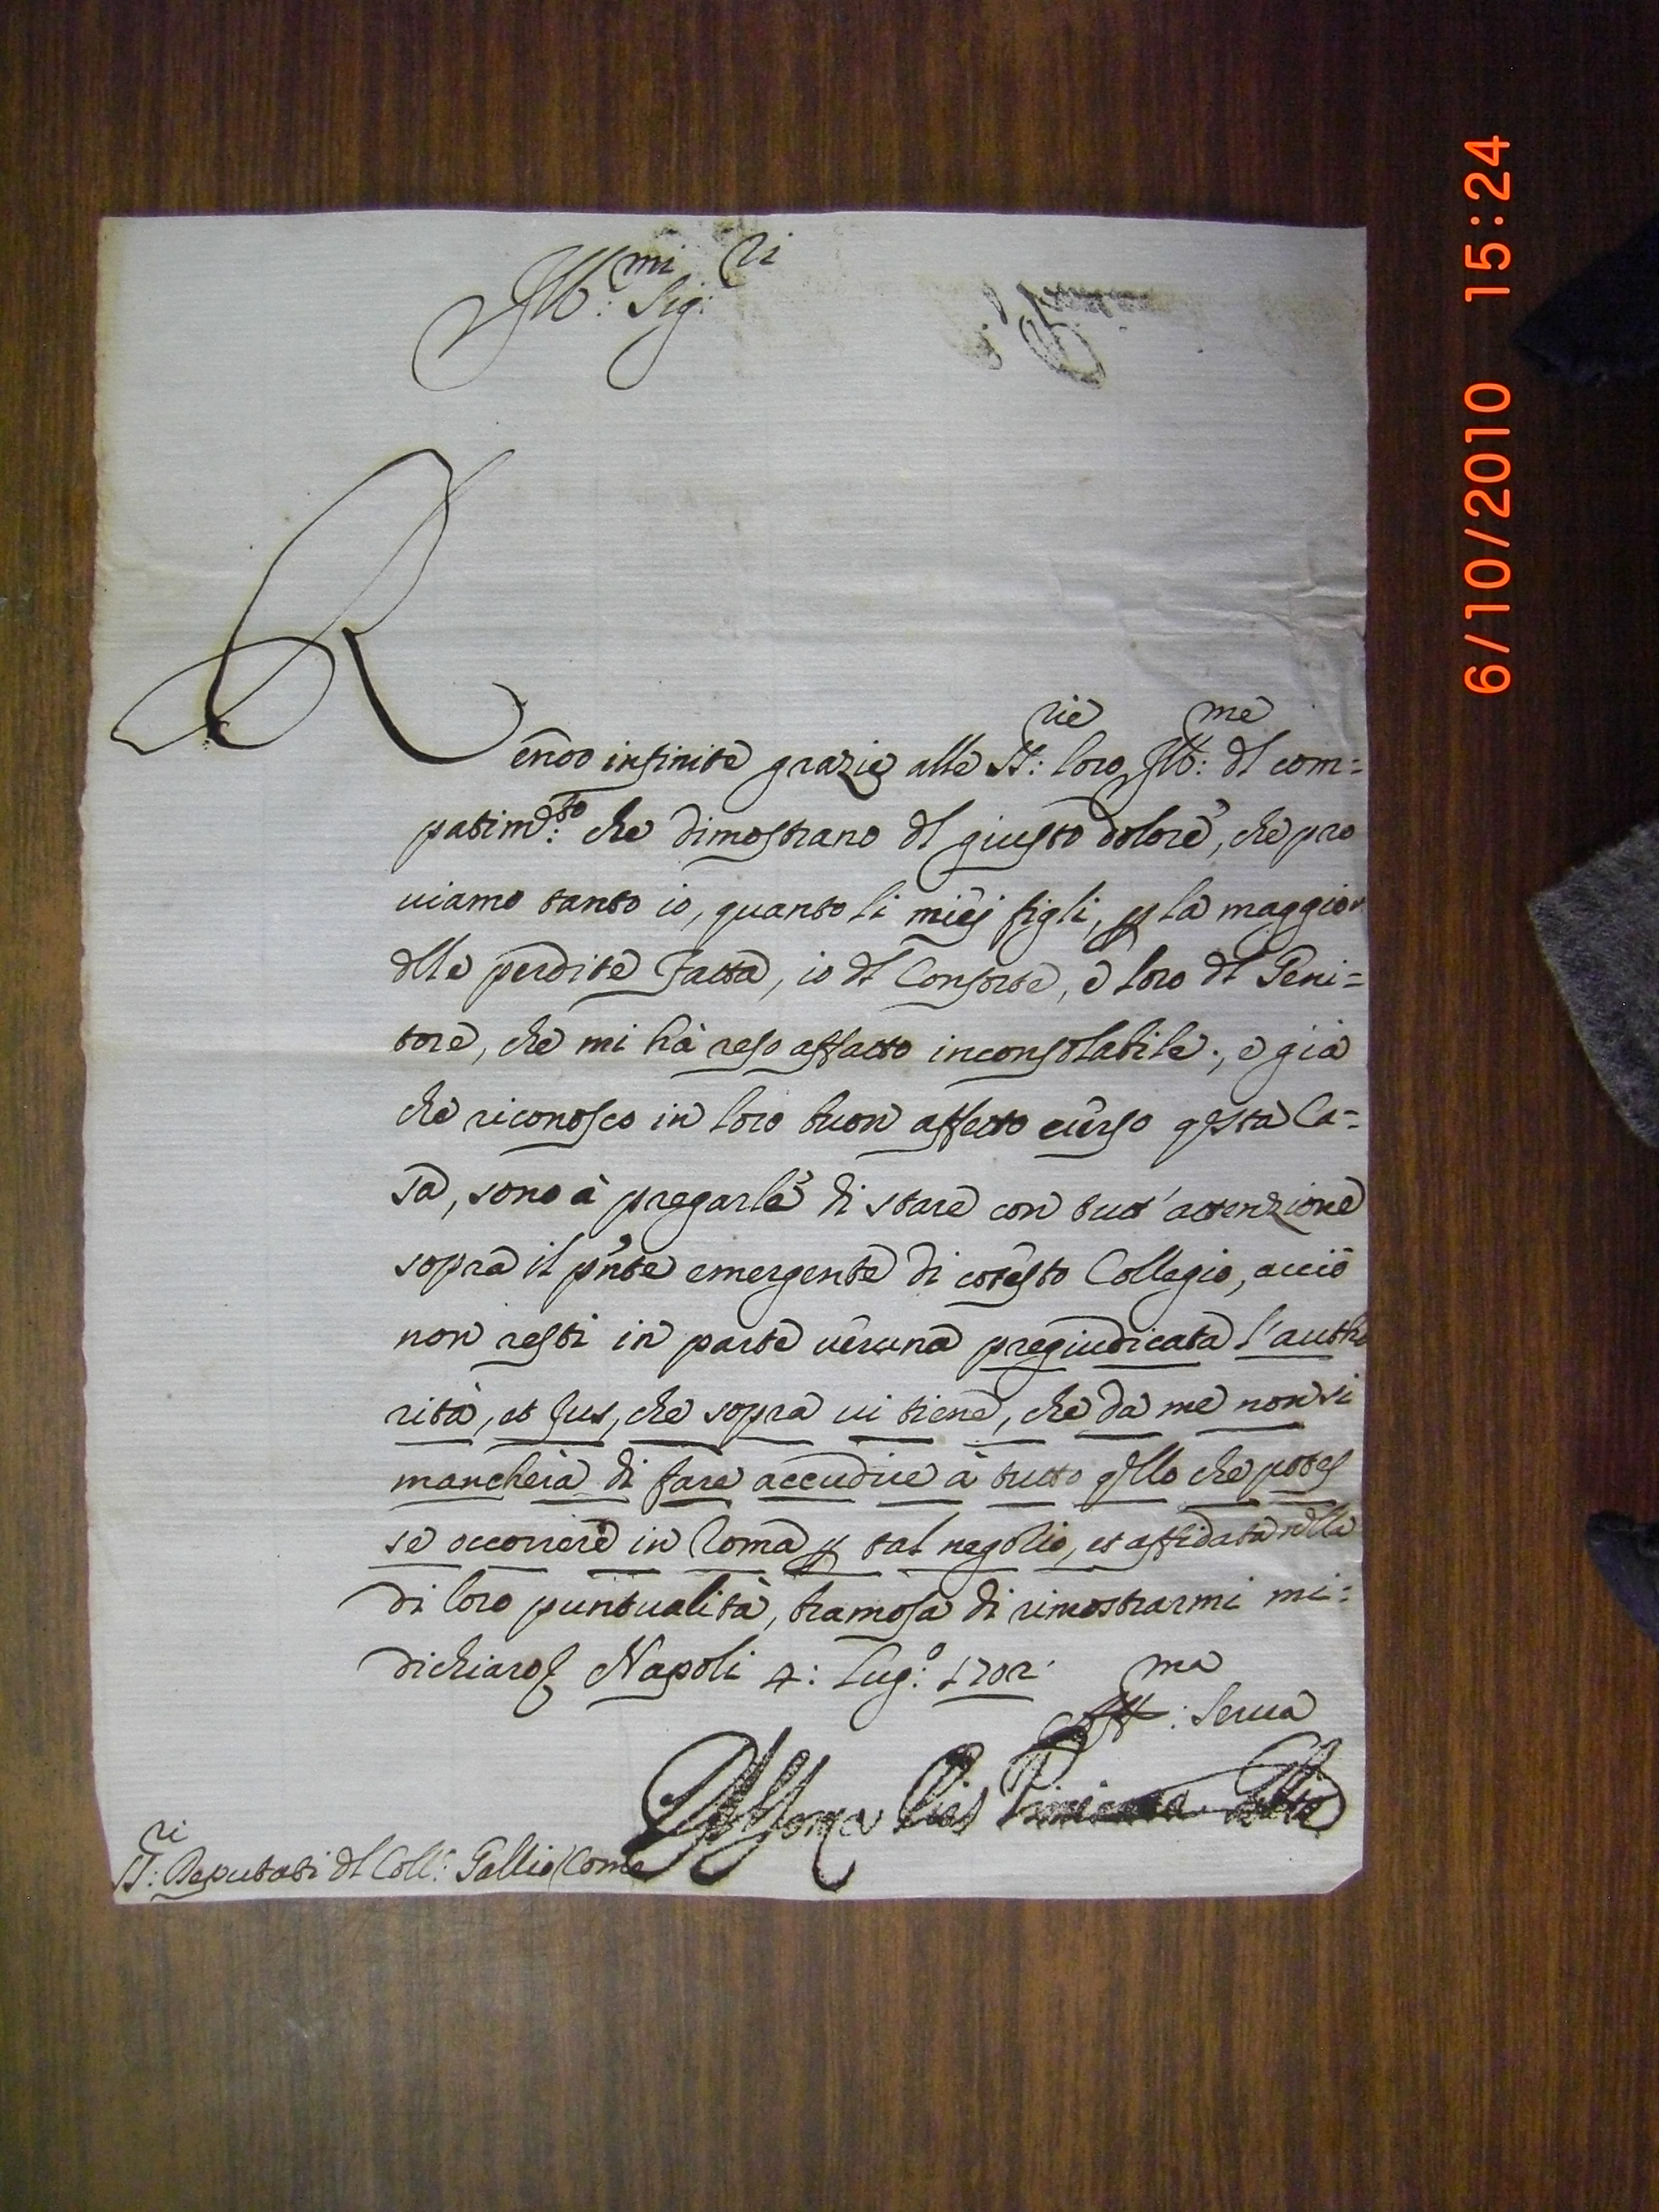 Ill:mi Sig:ri
Rendo infinite grazie alle SS:rie loro Ill:me dl com=
patim:to che dimostrano dl giusto dolore, che pro
uiamo tanto io, quanto li miei figli, p la maggior
dlle perdite fatta, io dl Consorte, e loro dl Geni=
tore, che mi hà reso affatto inconsolabile; e già
che riconosco in loro buon affetto verso qsta Ca=
sa, sono à pregarle di stare con tutt'attenzione
sopra il pnte emergente di cotesto Collegio, acciò
non resti in parte veruna pregiudicata l'autho
rità, et Jus, che sopra ui tiene, che da me non si
mancherà di fare accudire à tutto qllo che potes
se occorrere in Roma p tal negotio, et affidata nella
di loro puntualità, bramosa di rimostrarmi mi=
dichiaro Napoli 4: Lug:o 1702
Aff:ma Serua
Alfonza Pimienta Gallio
SS:ri Deputati dl Coll: Gallio Como
6/10/2010 15:24